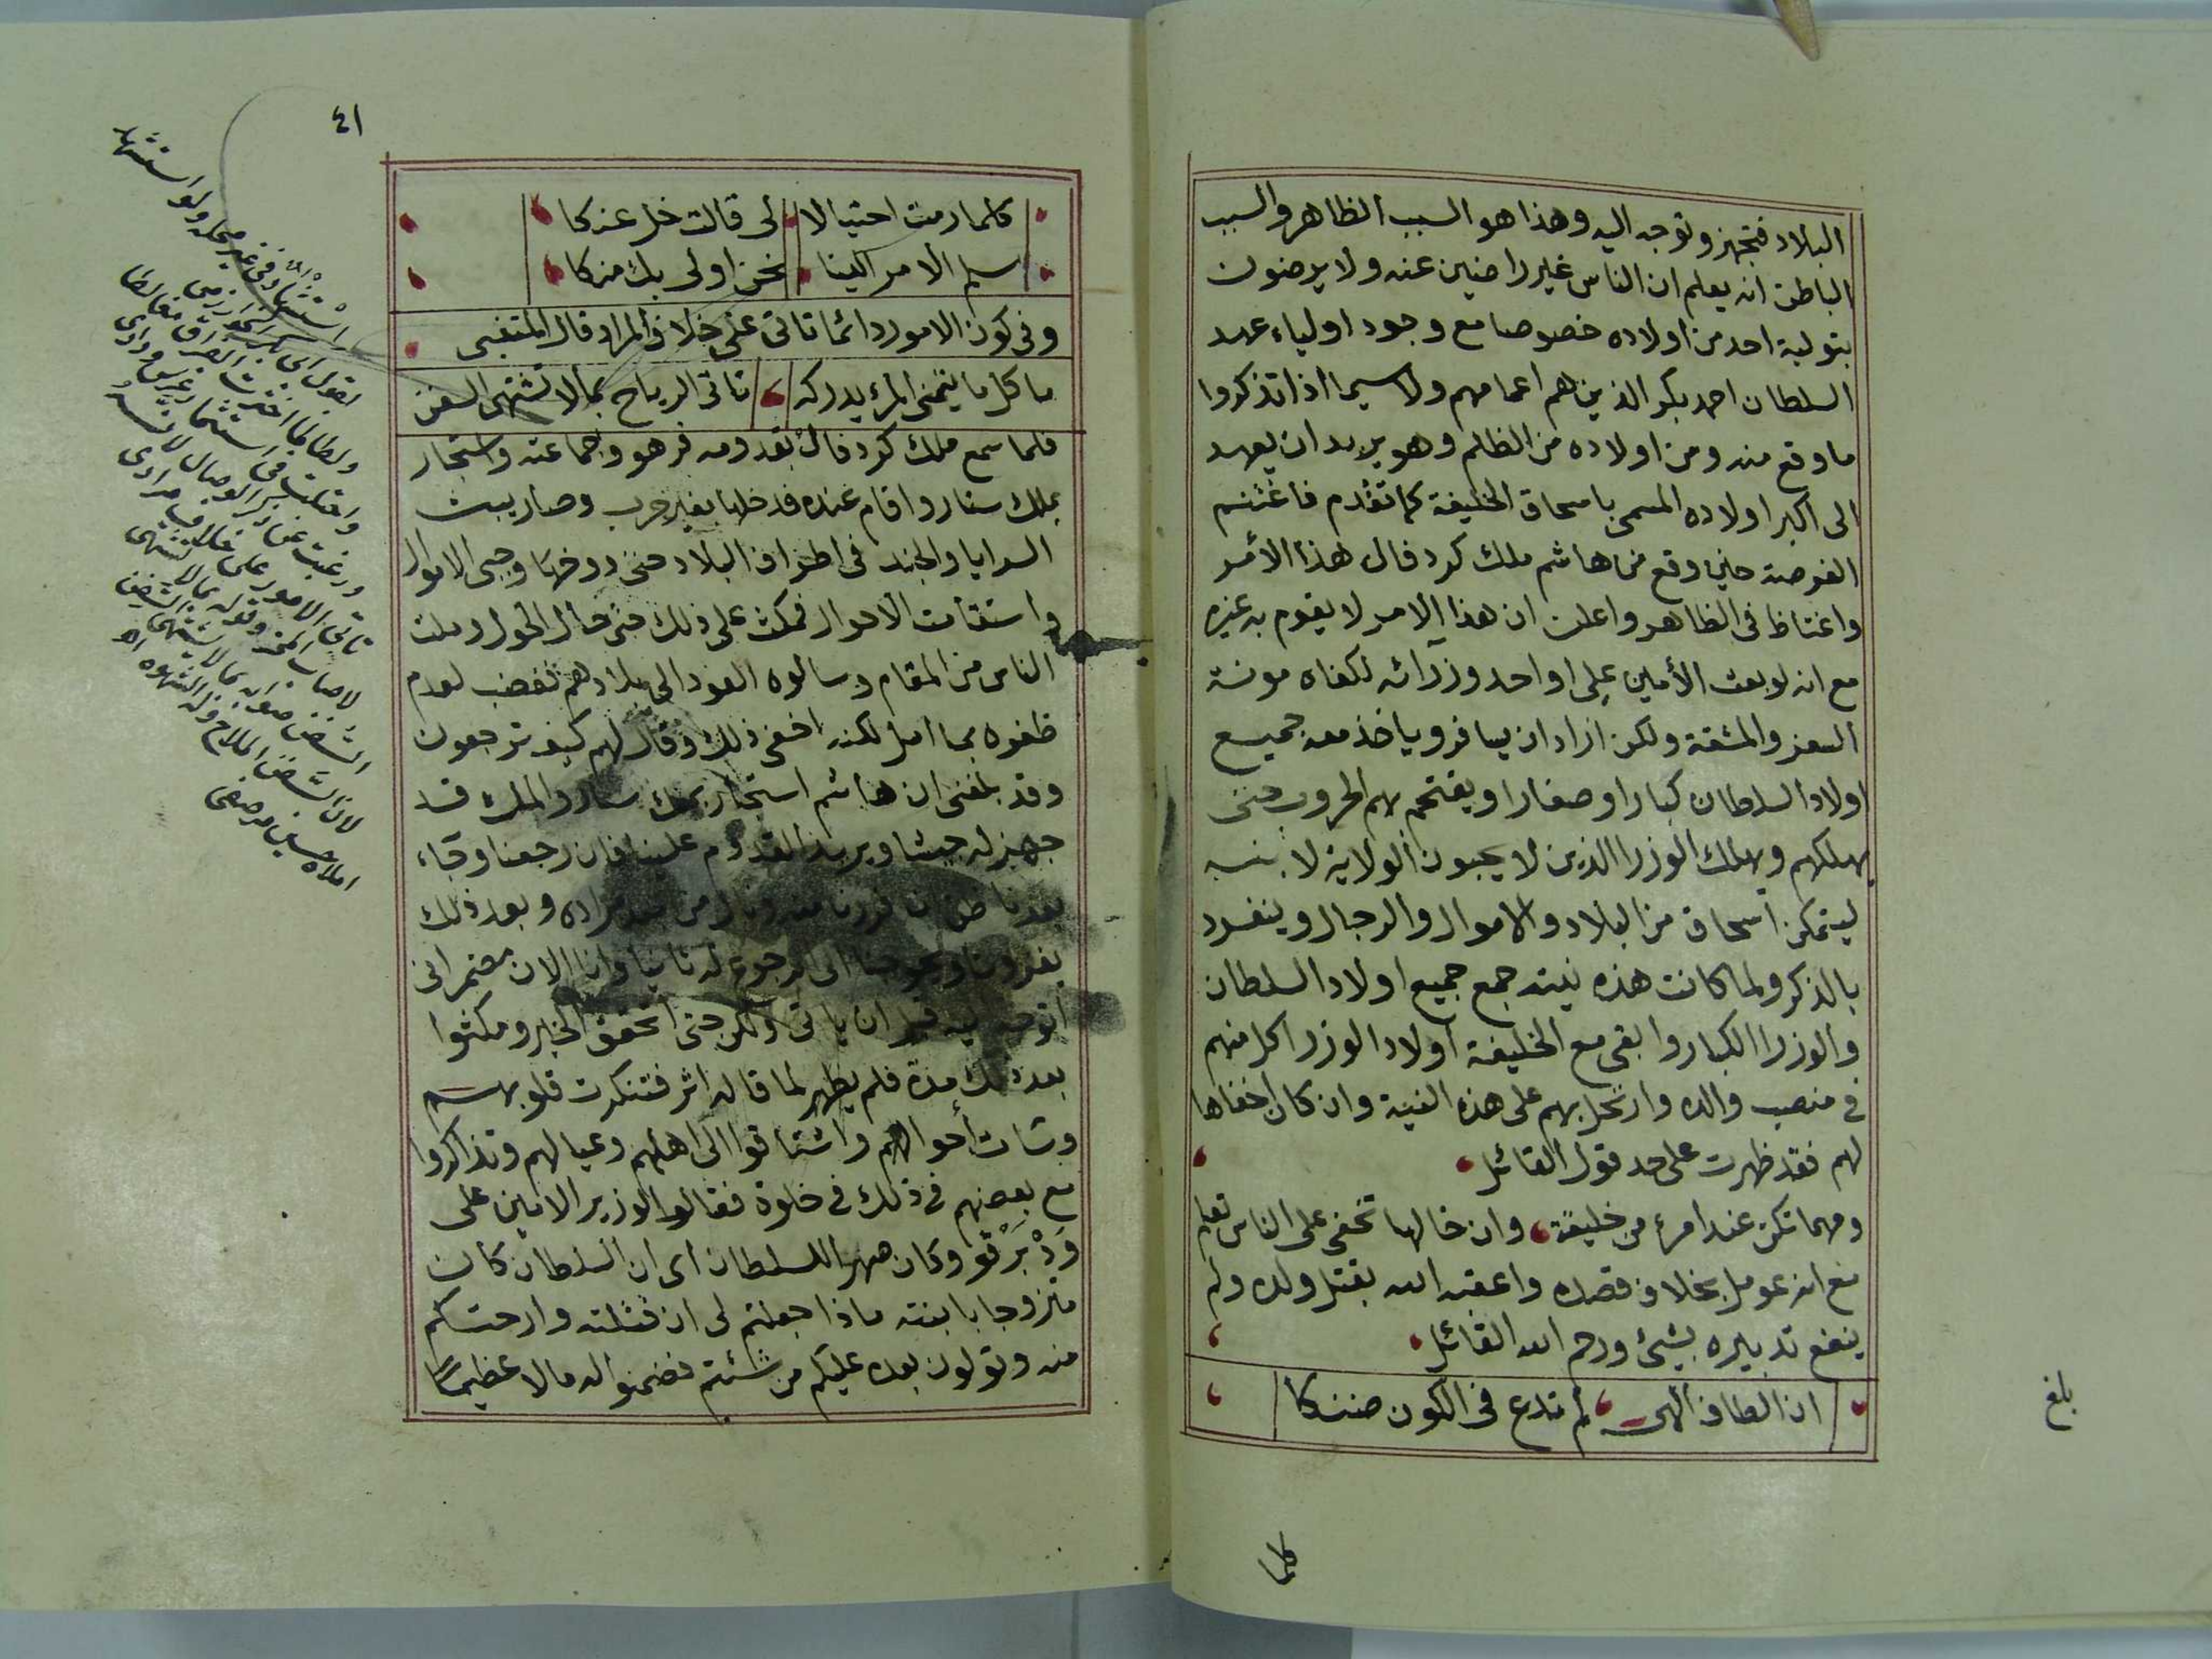 البلاد فتجهز وتوجه اليه وهذا هو السبب الظاهر والسبب
الباطن انه يعلم ان الناس غير راضين عنه ولا يرضون
بتولية احد من اولاده خصوصا مع وجود اولياء عهد
السلطان احمد بكر الذين هم اعمامهم ولا سيما اذا تذكروا
ما وقع منه ومن اولاده من الظلم وهو يريد ان يعهد
الى اكبر اولاده المسمى باسحاق الخليفة كما تقدم فاغتنم
الفرصة حين وقع من هاشم ملك كردفال هذا الأمر
واغتاظ فى الظاهر واعلن ان هذا الامر لا يقوم به غيره
مع انه لو بعث الأمين على او احد وزرائه لكفاه مونة
السفر والمشقة ولكن اراد ان يسافر وياخذ معه جميع
اولاد السلطان كبارا وصغارا ويقتحم بهم الحروب حتى
يهلكهم ويهلك الوزرا الذين لا يحبون الولاية لابنه
ليتمكن اسحاق من البلاد والاموال والرجال وينفرد
بالذكر ولما كانت هذه نيته جمع جميع اولاد السلطان
والوزرا الكبار وابقى مع الخليفة اولاد الوزرا كل منهم
فى منصب والده وارتحل بهم على هذه النية وان كان اخفاها
لهم فقد ظهرت على حد قول القائل
ومهما تكن عند امرء من خليقة وان خالها تخفى على الناس تعلم
مع انه عومل بخلاف قصده واعقبه الله بقتل ولده ولم
ينفع تدبيره بشيئ ورحم الله القائل
ان الطاف الهى لم تدع فى الكون ضنكا
بلغ
كلما
٤١
كلما رمت احتيالا لى قالت خل عنكا
سلم الامر الينا نحن اولى بك منكا
وفى كون الامور دائما تاتى على خلاف المراد قال المتنبى
ما كل ما يتمنى المرء يدركه تاتى الرياح بما لا تشتهى السفن
فلما سمع ملك كردفال بقدومه فر هو وجماعته واستجار
بملك سنار واقام عنده فدخلها بغير حرب وصار يبث
السرايا والجند فى اطراف البلاد حتى دوخها وجبى الاموال
واستقامت الاحوال فمكث على ذلك حتى حال الحول وملت
الناس من المقام وسالوه العود الى بلادهم فغضب لعدم
ظفره بما امل لكنه اخفى ذلك وقال لهم كيف ترجعون
وقد بلغنى ان هاشم استجار بملك سنار والملك قد
جهز له جيشا ويريد القدوم علينا فان رجعنا وجاء
بعدنا ظن ان فررنا منه ونال من مراده وبعد ذلك
يغزونا ويحوجنا الى الرجوع له ثانيا وانا الان مضمر انى
اتوجه اليه قبل ان ياتى ولكن حتى اتحقق الخبر ومكثوا
بعد ذلك مدة فلم يظهر لما قاله اثر فتنكرت قلوبهم
وساءت أحوالهم واشتاقوا الى اهلهم وعيالهم وتذاكروا
مع بعضهم فى ذلك فى خلوة فقالوا الوزير الامين على
وَدْ بَرْقو وكان صهرا للسلطان اى ان السلطان كان
متزوجا بابنته ماذا جعلتم لى ان قتلته وارحتكم
منه وتولون بعده عليكم من شئتم فضمنوا له مالا عظيما
استشهاده فى غير محله ولو استشهد
بقول ابى بكر الخوارزمى
ولطالما اخترت الفراق مغالطا
واحتلت فى استثمار غرس ودادى
ورغبت عن ذكر الوصال لانه
تاتى الامور على خلاف مرادى
لاصاب المحز وقوله بما لا تشتهى
السفن صوابه بما لا يشتهى السفن
لان السفن الملاح وله الشهوه اه
املاه حسين مرصفى